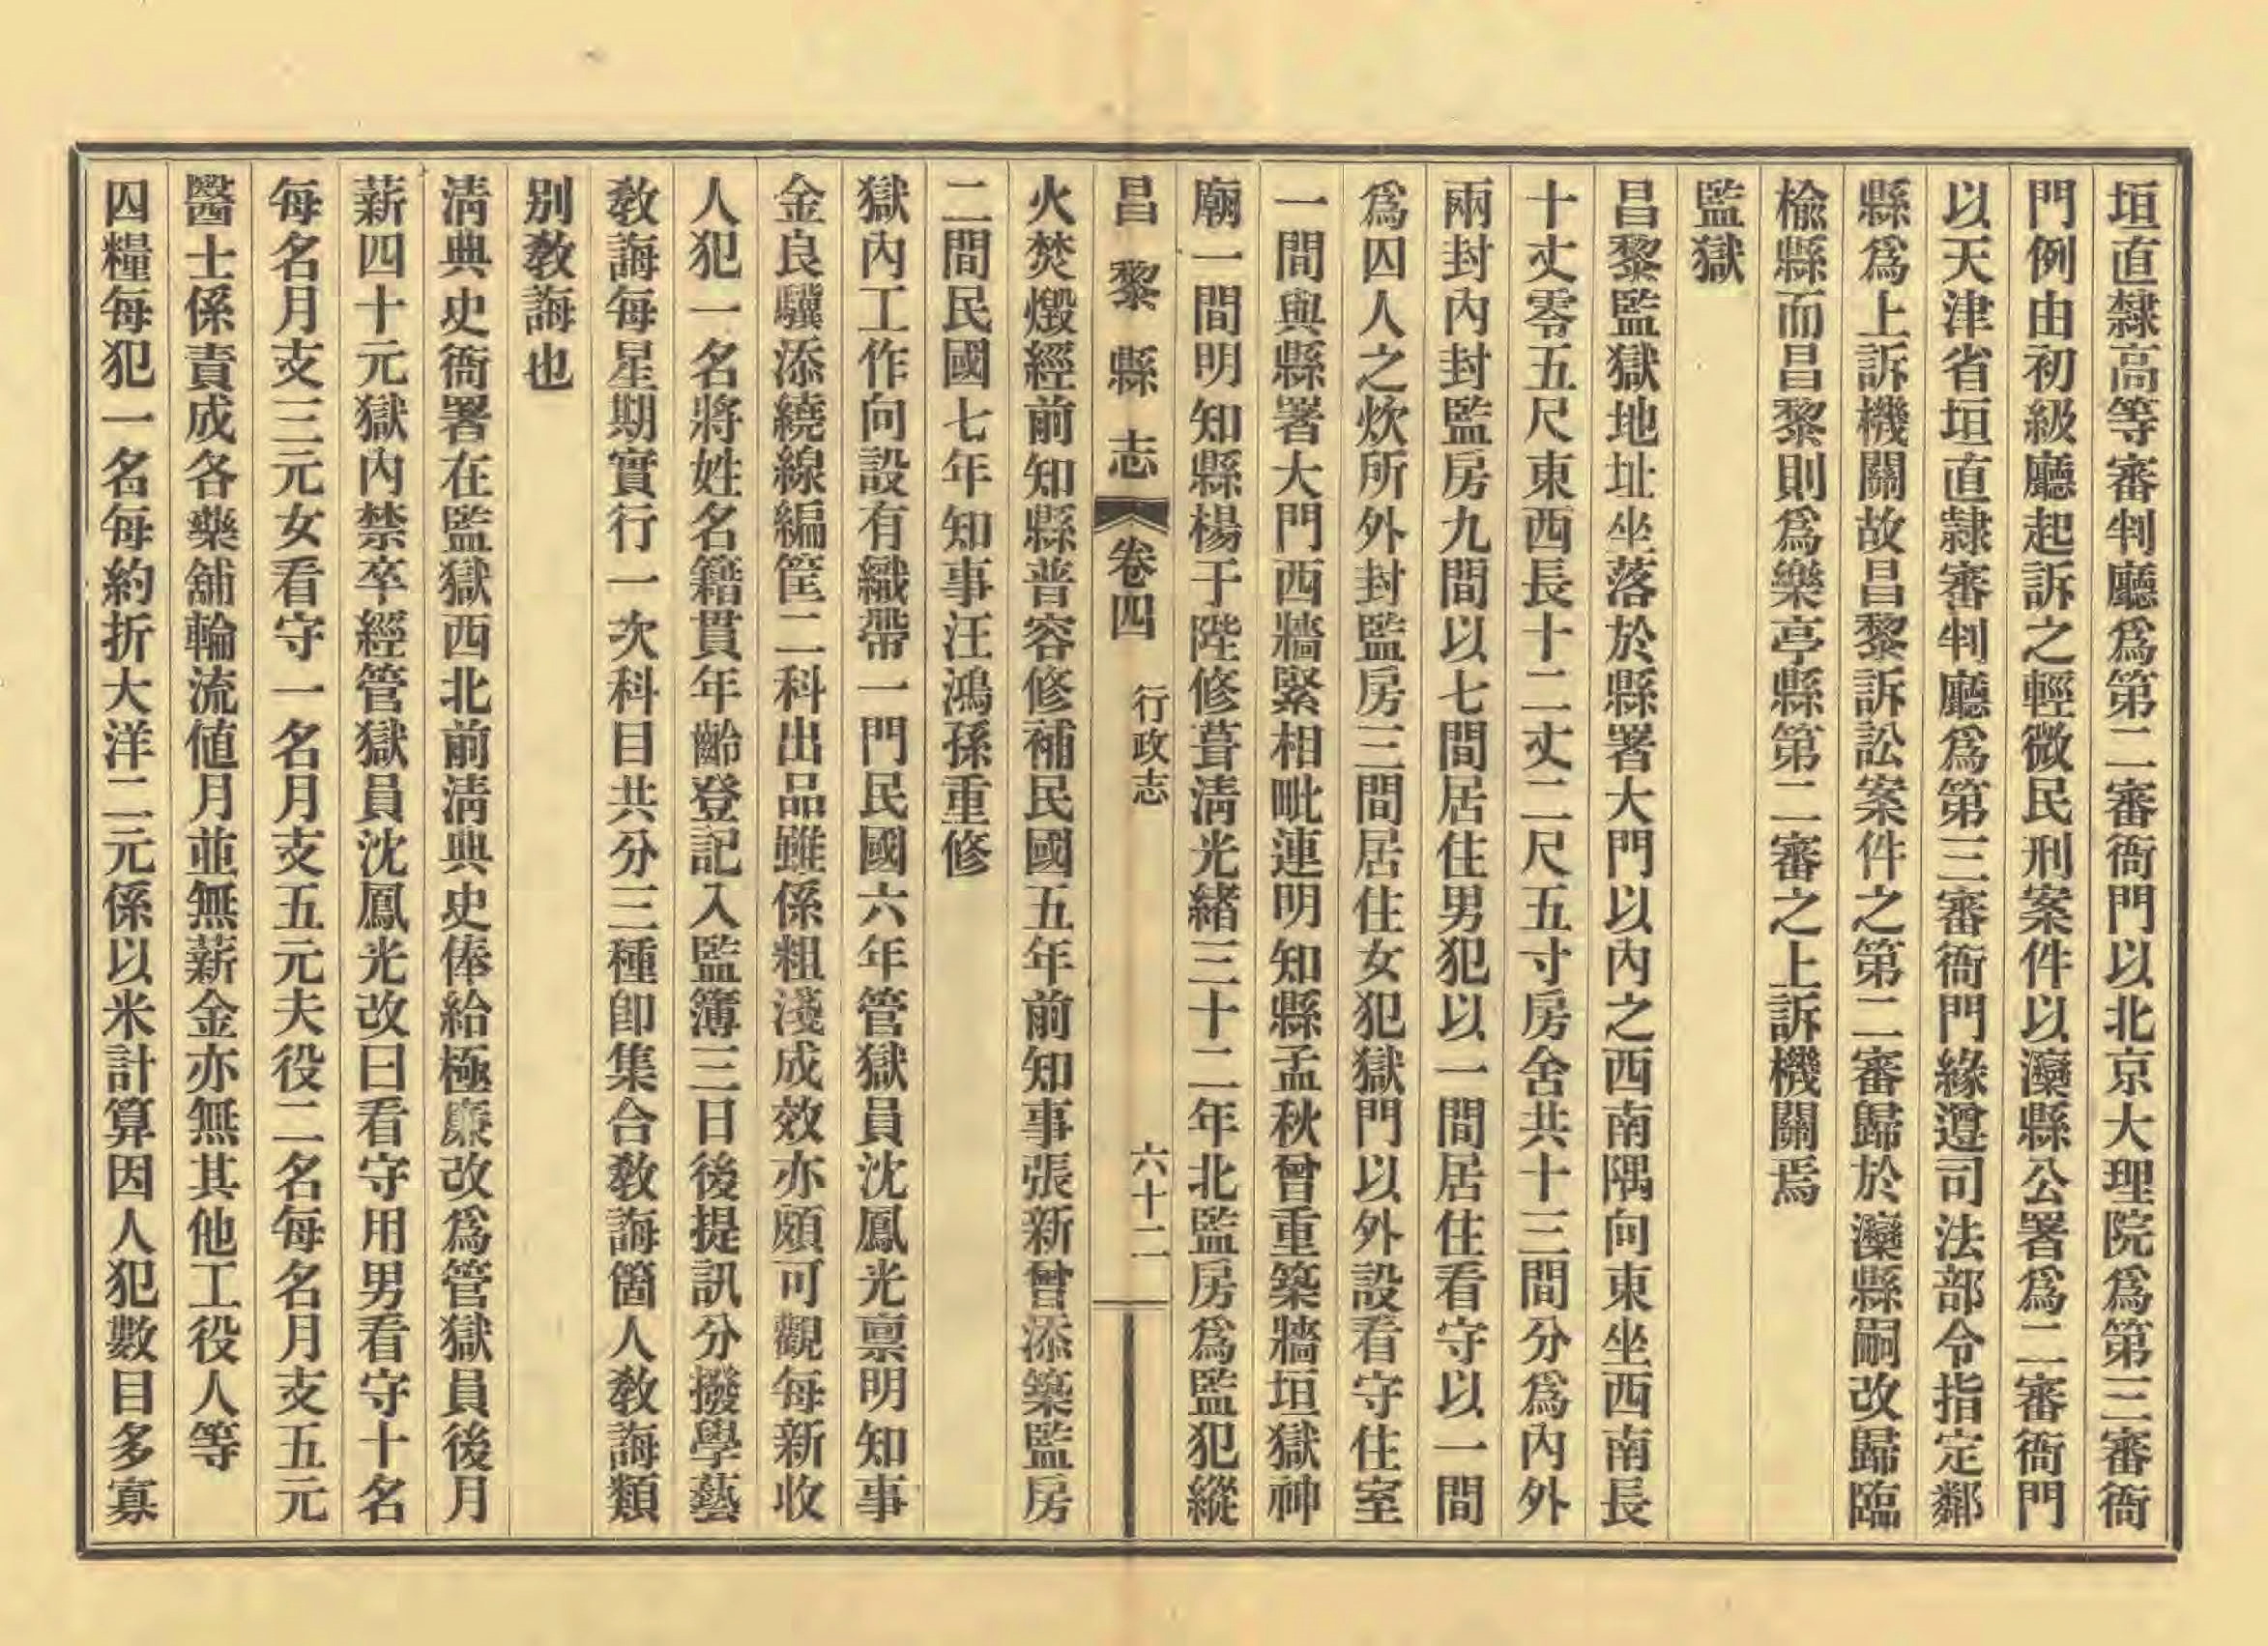 垣直隸高等審判廳爲第二審衙門以北京大理院爲第三審衙
門例由初級廳起訴之輕微民刑案件以灤縣公署爲二審衙門
以天津省垣直隸審判廳爲第三審衙門緣遵司法部令指定鄰
縣爲上訴機關故昌黎訴訟案件之第二審歸於灤縣嗣改歸臨
楡縣而昌黎則爲樂亭縣第二審之上訴機關焉
監獄
昌黎監獄地址坐落於縣署大門以內之西南隅向東坐西南長
十丈零五尺東西長十二丈二尺五寸房舍共十三間分爲內外
兩封內封監房九間以七間居住男犯以一間居住看守以一間
爲囚人之炊所外封監房三間居住女犯獄門以外設看守住室
一間與縣署大門西牆緊相毗連明知縣孟秋曾重築牆垣獄神
廟一間明知縣楊于陛修葺淸光緒三十二年北監房爲監犯縱
昌黎縣志 卷四 行政志 六十二
火焚燬經前知縣普容修補民國五年前知事張新曾添築監房
二間民國七年知事汪鴻孫重修
獄內工作向設有織帶一門民國六年管獄員沈鳳光禀明知事
金良驥添繞線編筐二科出品雖係粗淺成效亦頗可觀每新收
人犯一名將姓名籍貫年齡登記入監簿三日後提訊分撥學藝
敎誨每星期實行一次科目共分三種卽集合敎誨箇人敎誨類
别敎誨也
淸典史衙署在監獄西北前淸典史俸給極廉改爲管獄員後月
薪四十元獄內禁卒經管獄員沈鳳光改曰看守用男看守十名
每名月支三元女看守一名月支五元夫役二名每名月支五元
醫士係責成各藥舖輪流值月並無薪金亦無其他工役人等
囚糧每犯一名每約折大洋二元係以米計算因人犯數目多寡